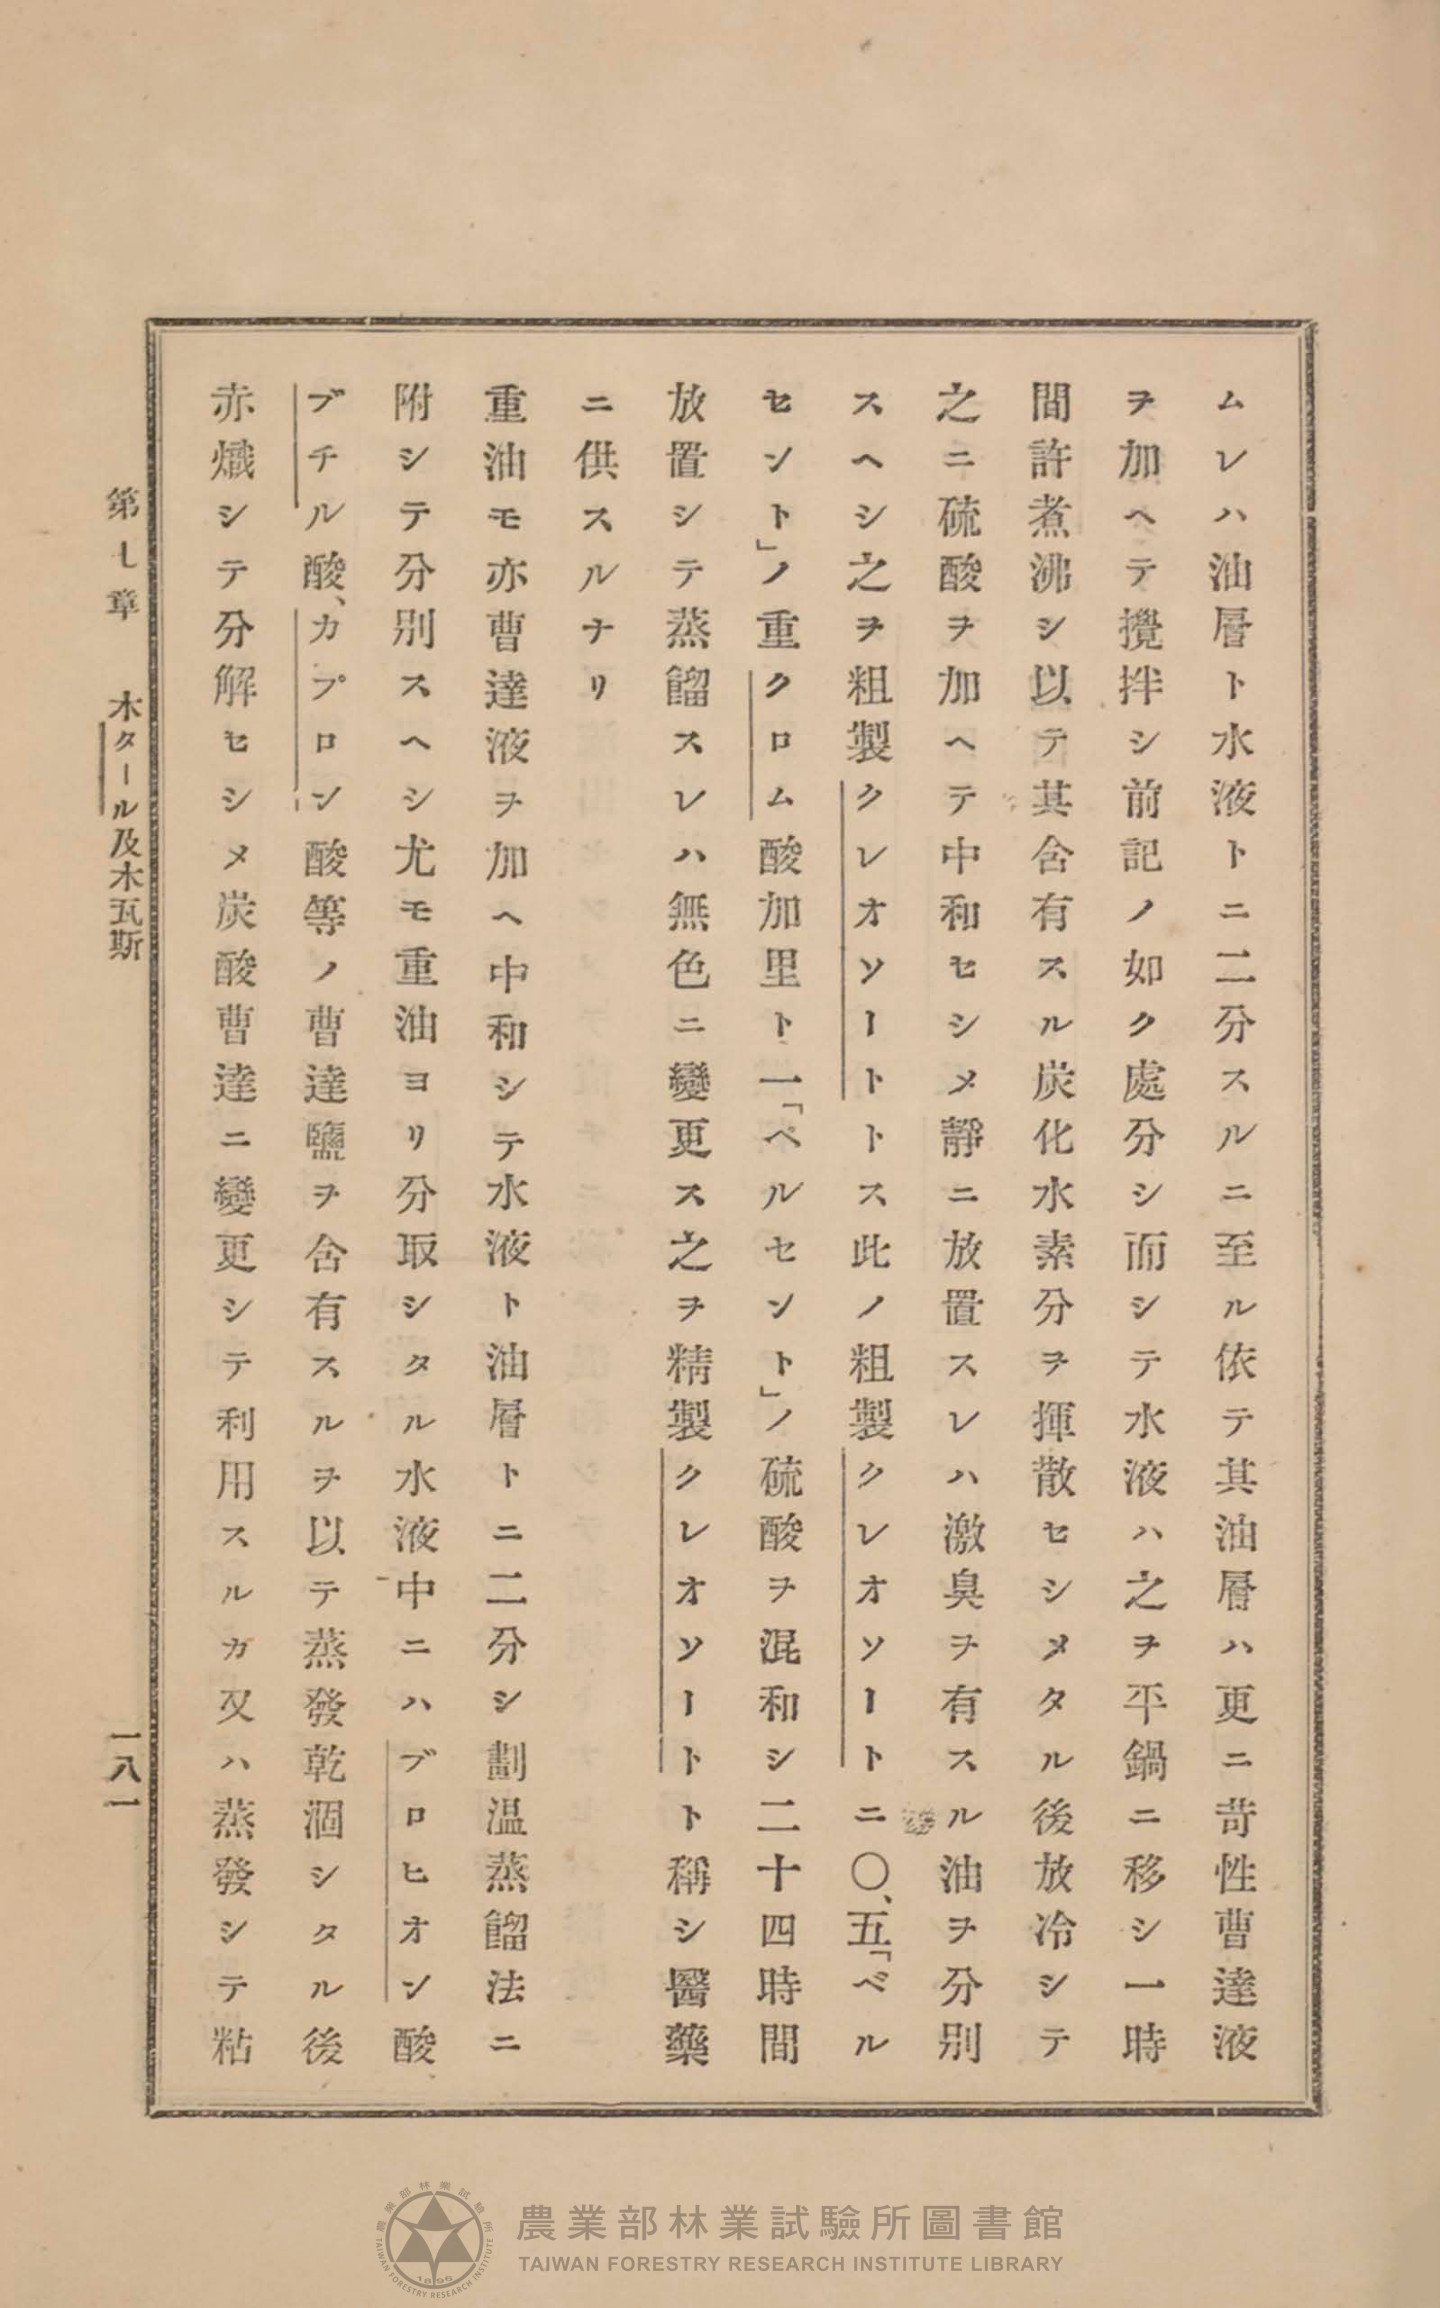 ムレハ油層ト水液トニ二分スルニ至ル依テ其油層ハ更ニ苛性曹達液
ヲ加ヘテ攪拌シ前記ノ如ク處分シ而シテ水液ハ之ヲ平鍋ニ移シ一時
間許煮沸シ以テ其含有スル炭化水素分ヲ揮散セシメタル後放冷シテ
之ニ硫酸ヲ加ヘテ中和セシメ靜ニ放置スレハ激臭ヲ有スル油ヲ分別
スヘシ之ヲ粗製クレオソートトス此ノ粗製クレオソートニ〇、五「ベル
セント」ノ重クロム酸加里ト一「ペルセント」ノ硫酸ヲ混和シ二十四時間
放置シテ蒸餾スレハ無色ニ變更ス之ヲ精製クレオソートト稱シ醫藥
ニ供スルナリ
重油モ亦曹達液ヲ加ヘ中和シテ水液ト油層トニ二分シ劃温蒸餾法ニ
附シテ分別スヘシ尤モ重油ヨリ分取シタル水液中ニハブロヒオン酸
ブチル酸、カプロン酸等ノ曹達鹽ヲ含有スルヲ以テ蒸發乾涸シタル後
赤熾シテ分解セシメ炭酸曹達ニ變更シテ利用スルカ又ハ蒸發シテ粘
第七章　木タール及木瓦斯　一八一
農業部林業試驗所圖書館
TAIWAN FORESTRY RESEARCH INSTITUTE LIBRARY
農業部林業試驗所
TAIWAN FORESTRY RESEARCH INSTITUTE
1896